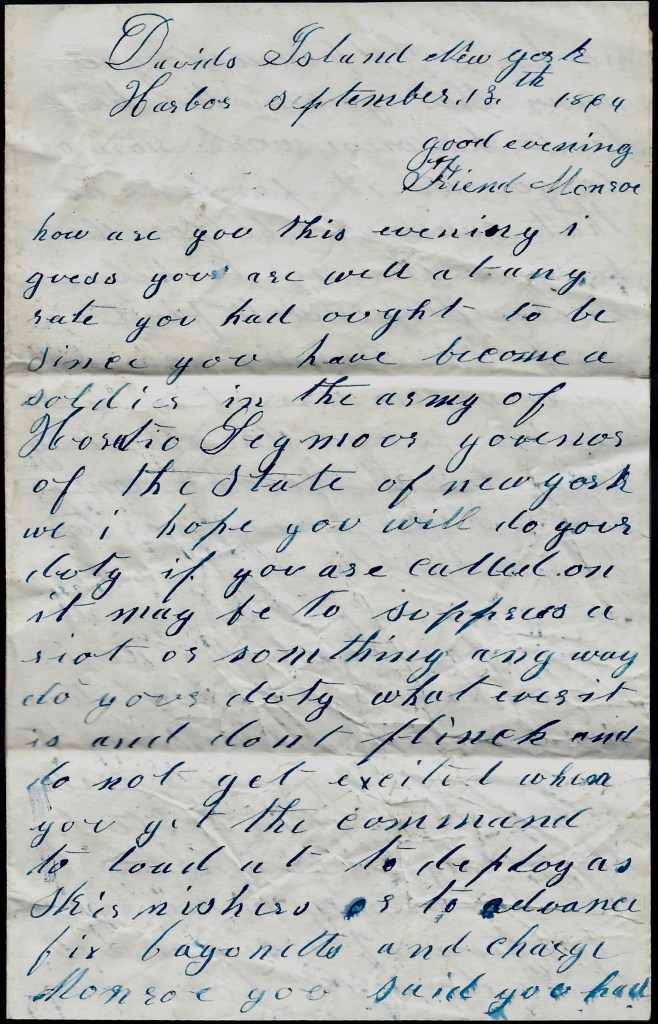 Davids Island New york
Harbor september. 13.th 1864
good evening
Friend Monroe
how are you this evening i
guess your are well at any
rate you had ought to be
since you have become a
soldier in the army of
Horatio Seymoor govenor
of the State of new york
we i hope you will do your
duty if you are called on
it may be to suppress a
riot or somthing any way
do your duty what ever it
is and dont flinch and
do not get excited when
you get the command
to load at to deploy as
Skirmishers or to advance
fix bayonetts and charge
Monroe you said you had